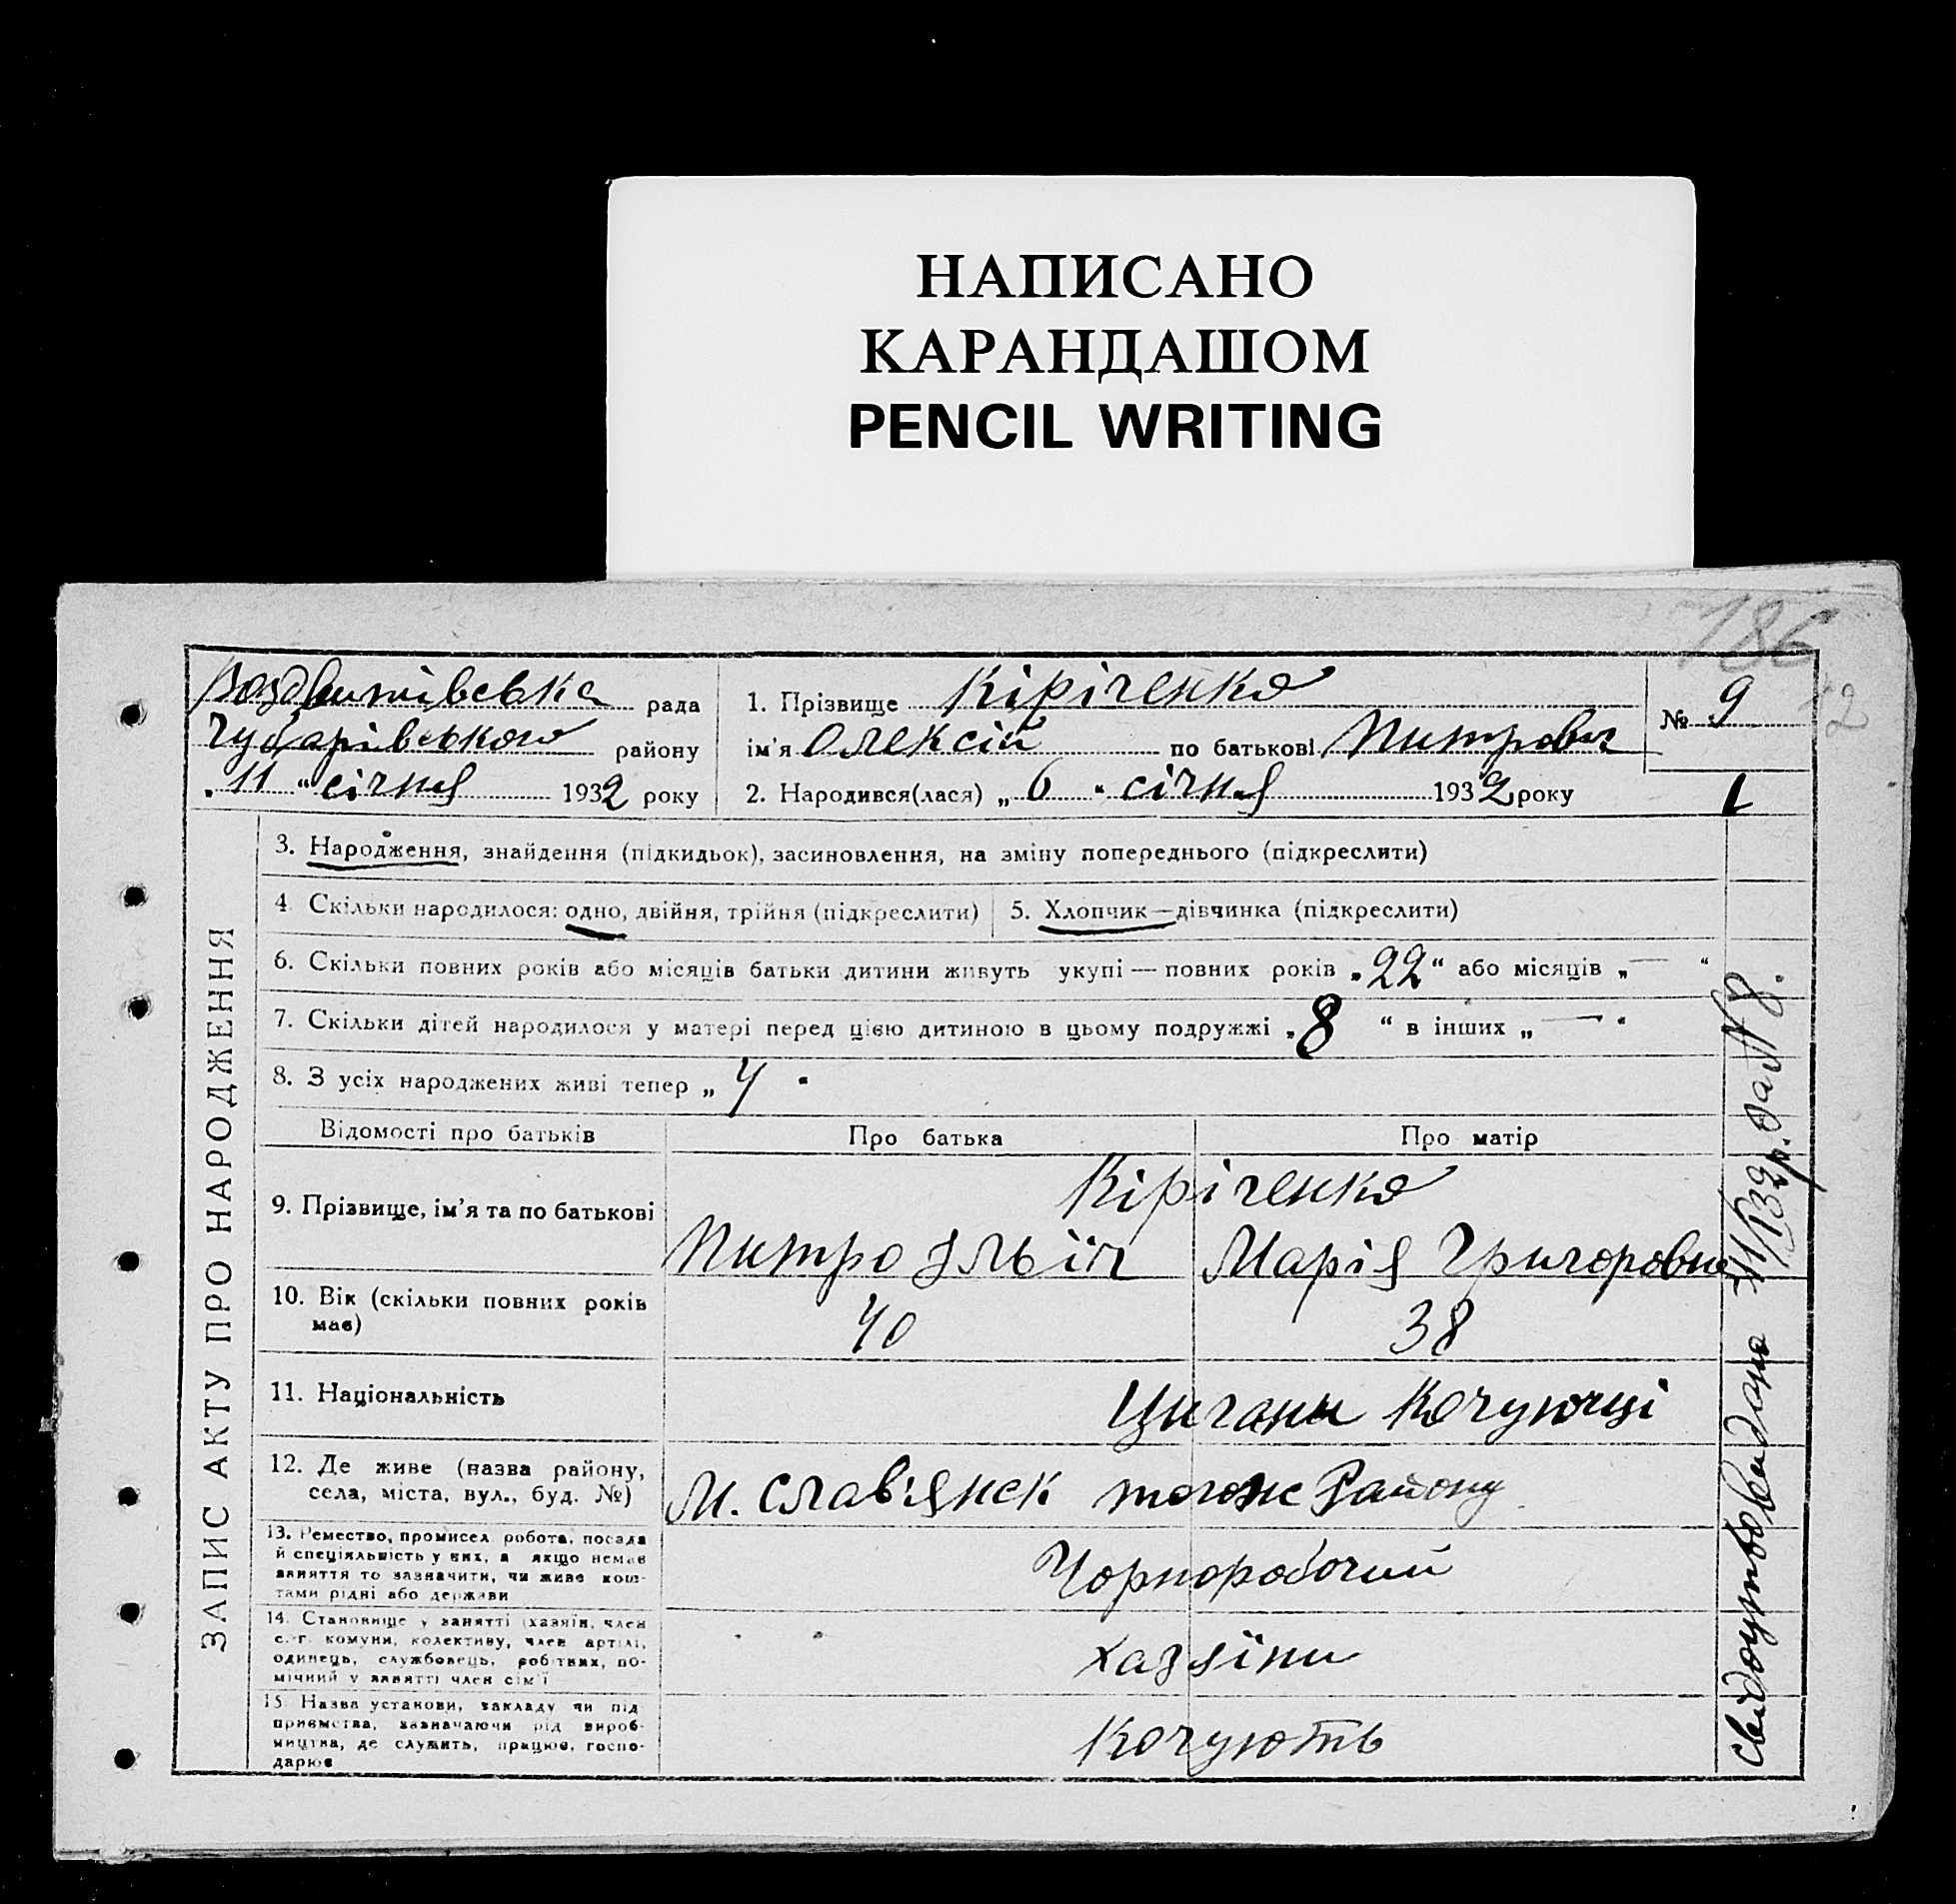 НАПИСАНО
КАРАНДАШОМ
PENCIL WRITING
186
12
Воздвижівська рада
Чубарівського району
„11“ січня 1932 року
1. Прізвище Кіріченко
ім’я Олексій по батькові Митрович
2. Народився(лася) „6“ січня 1932 року
№ 9
1
ЗАПИС АКТУ ПРО НАРОДЖЕННЯ
3. Народження, знайдення (підкидьок), засиновлення, на зміну попереднього (підкреслити)
4. Скільки народилося: одно, двійня, трійня (підкреслити)
5. Хлопчик—дівчинка (підкреслити)
6. Скільки повних років або місяців батьки дитини живуть укупі — повних років „22“ або місяців „—“
7. Скільки дітей народилося у матері перед цією дитиною в цьому подружжі „8“ в інших „—“
8. З усіх народжених живі тепер „4“
Відомості про батьків Про батька Про матір
Кіріченко
9. Прізвище, ім’я та по батькові
Митро Ільїч Марія Григоровна
10. Вік (скільки повних років
має)
40 38
11. Національність Цигани Кочуючі
12. Де живе (назва району,
села, міста, вул., буд. №)
М. Славянск тогоже Району
13. Ремество, промисел робота, посада
й спеціяльність у них, а якщо немає
заняття то зазначити, чи живе кош-
тами рідні або держави
Чорноробочий
14. Становище у занятті (хазяїн, член
с.-г. комуни, колективу, член артілі,
одинець, службовець, робітник, по-
мічний у занятті член сім’ї
хазяїни
15. Назва установи, закладу чи під
приємства, зазначаючи рід вироб-
ництва, де служить, працює, госпо-
дарює
Кочують
Свідоцтво видано 11/I 32р. за № 8.